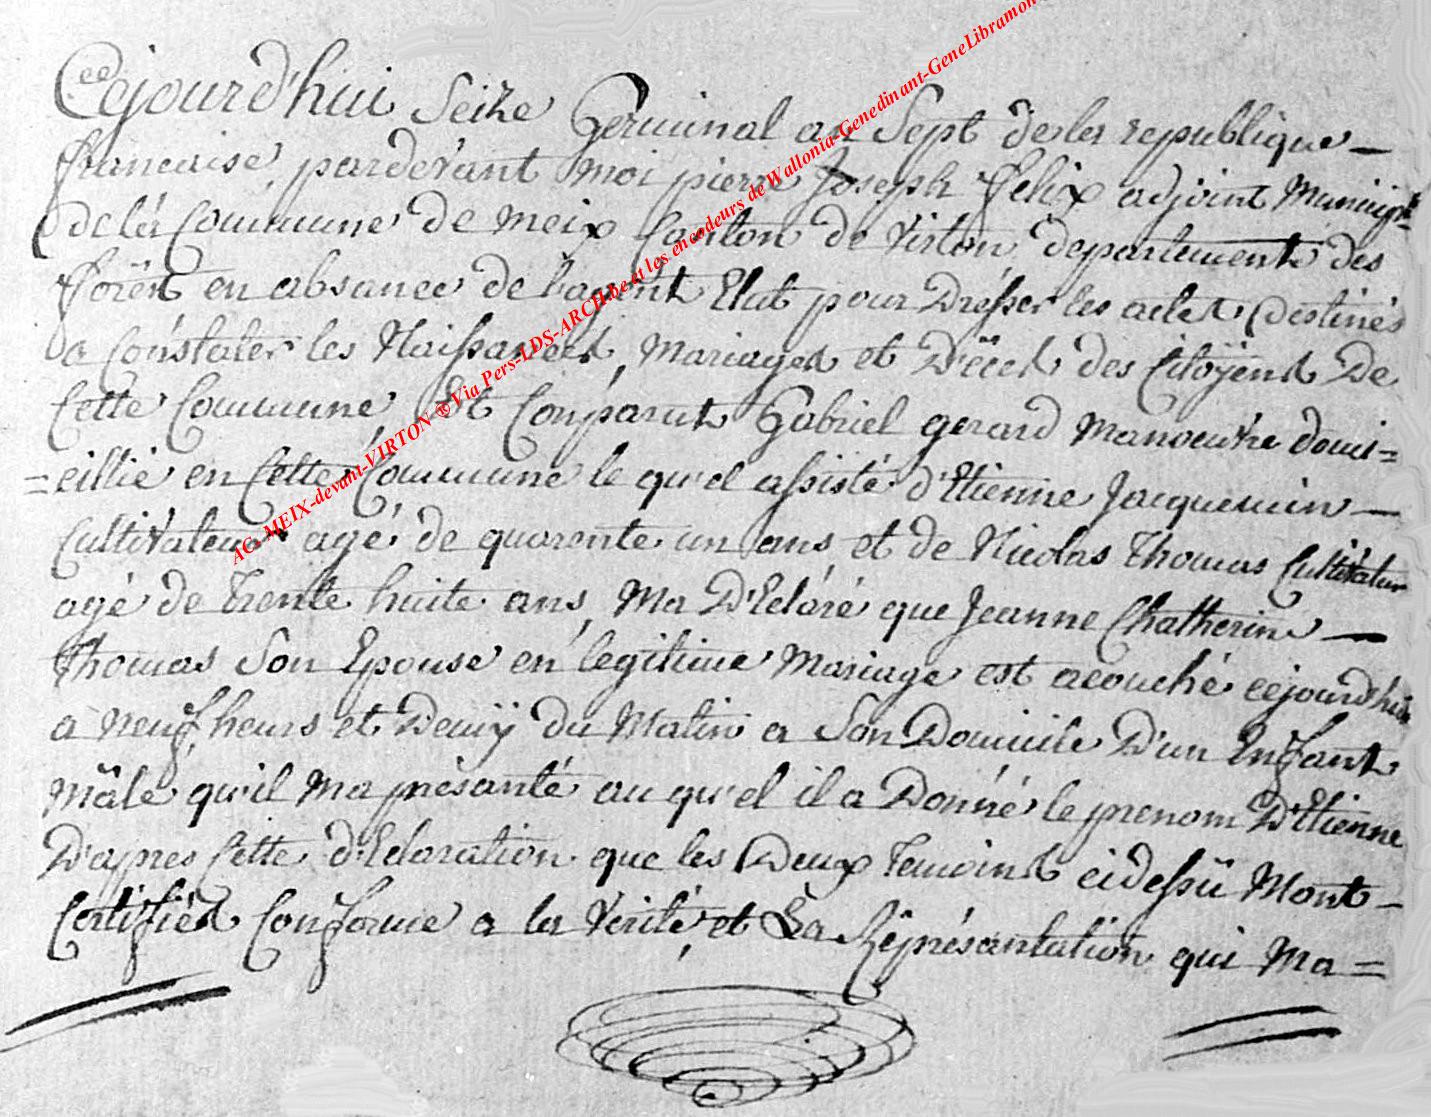 Cejourd'hui Seize Germinal an Sept de la republique
francaise, pardevant moi pierre Joseph Felix adjoint Municip
de la Commune de meix Canton de Virton departement des
forêts en absance de l'agent Elut pour Dresser les actes Destinés
a Constater les Naissances, Mariages et D'écès des Citoÿens De
Cette Commune, Est Comparut Gabriel gerard Manoeuvre domi=
=cillié en Cette Commune le qu'el assisté d'Etienne Jacquemin
Cultivateur agé de quarente un ans et de Nicolas Thomas Cultivateur
agé de Trente huite ans, Ma D'Eclaré que Jeanne Chatherine
Thomas Son Epouse en légitime Mariage est acouché cejourd'hui
a neuf heurs et Demÿ du Matin a Son Domicile D'un Enfant
Mâle qu'il Ma présanté au qu'el il a Donné le prenom D'Etienne
D'apres Cette d'Eclaration que les Deux Temoins cidessu Mont
Certifiés Conforme a la Verité, et La Réprésantation qui Ma=
AC-MEIX-devant-VIRTON ® Via Pers-LDS-ARCH.be et les encodeurs de Wallonia-Genedinant-GeneLibramon